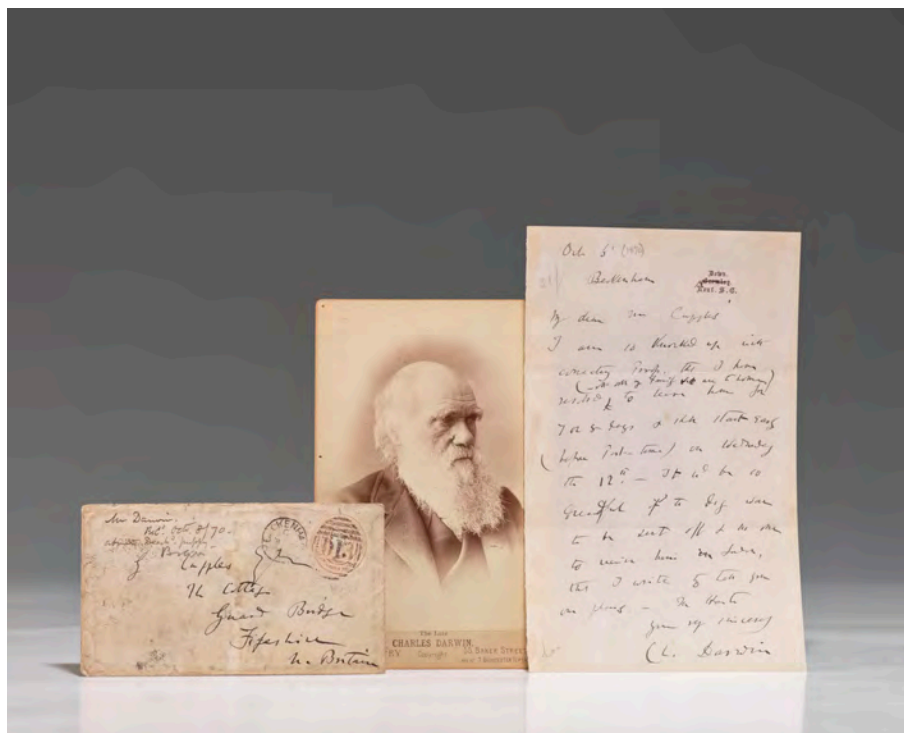 Mr Darwin.
Oct. 8/70.
G Cupples
The Cottage
Guard Bridge
Fifeshire
N. Britain
The Late
CHARLES DARWIN.
Copyright
55, BAKER STREET
Oct 5th (1870)
Down,
Beckenham
Kent. S.E.
My dear Mr Cupples
I am so knocked up with
correcting Proofs, that I have
(
resolved to leave home for
7 or 8 days & shall start early
(before Post-time) on Wednesday
the 12th — It wd be so
dreadful if the dog was
to be sent off & no one
to receive him on
that I write to tell you
our plans — In Haste
yours very sincerely
Ch. Darwin